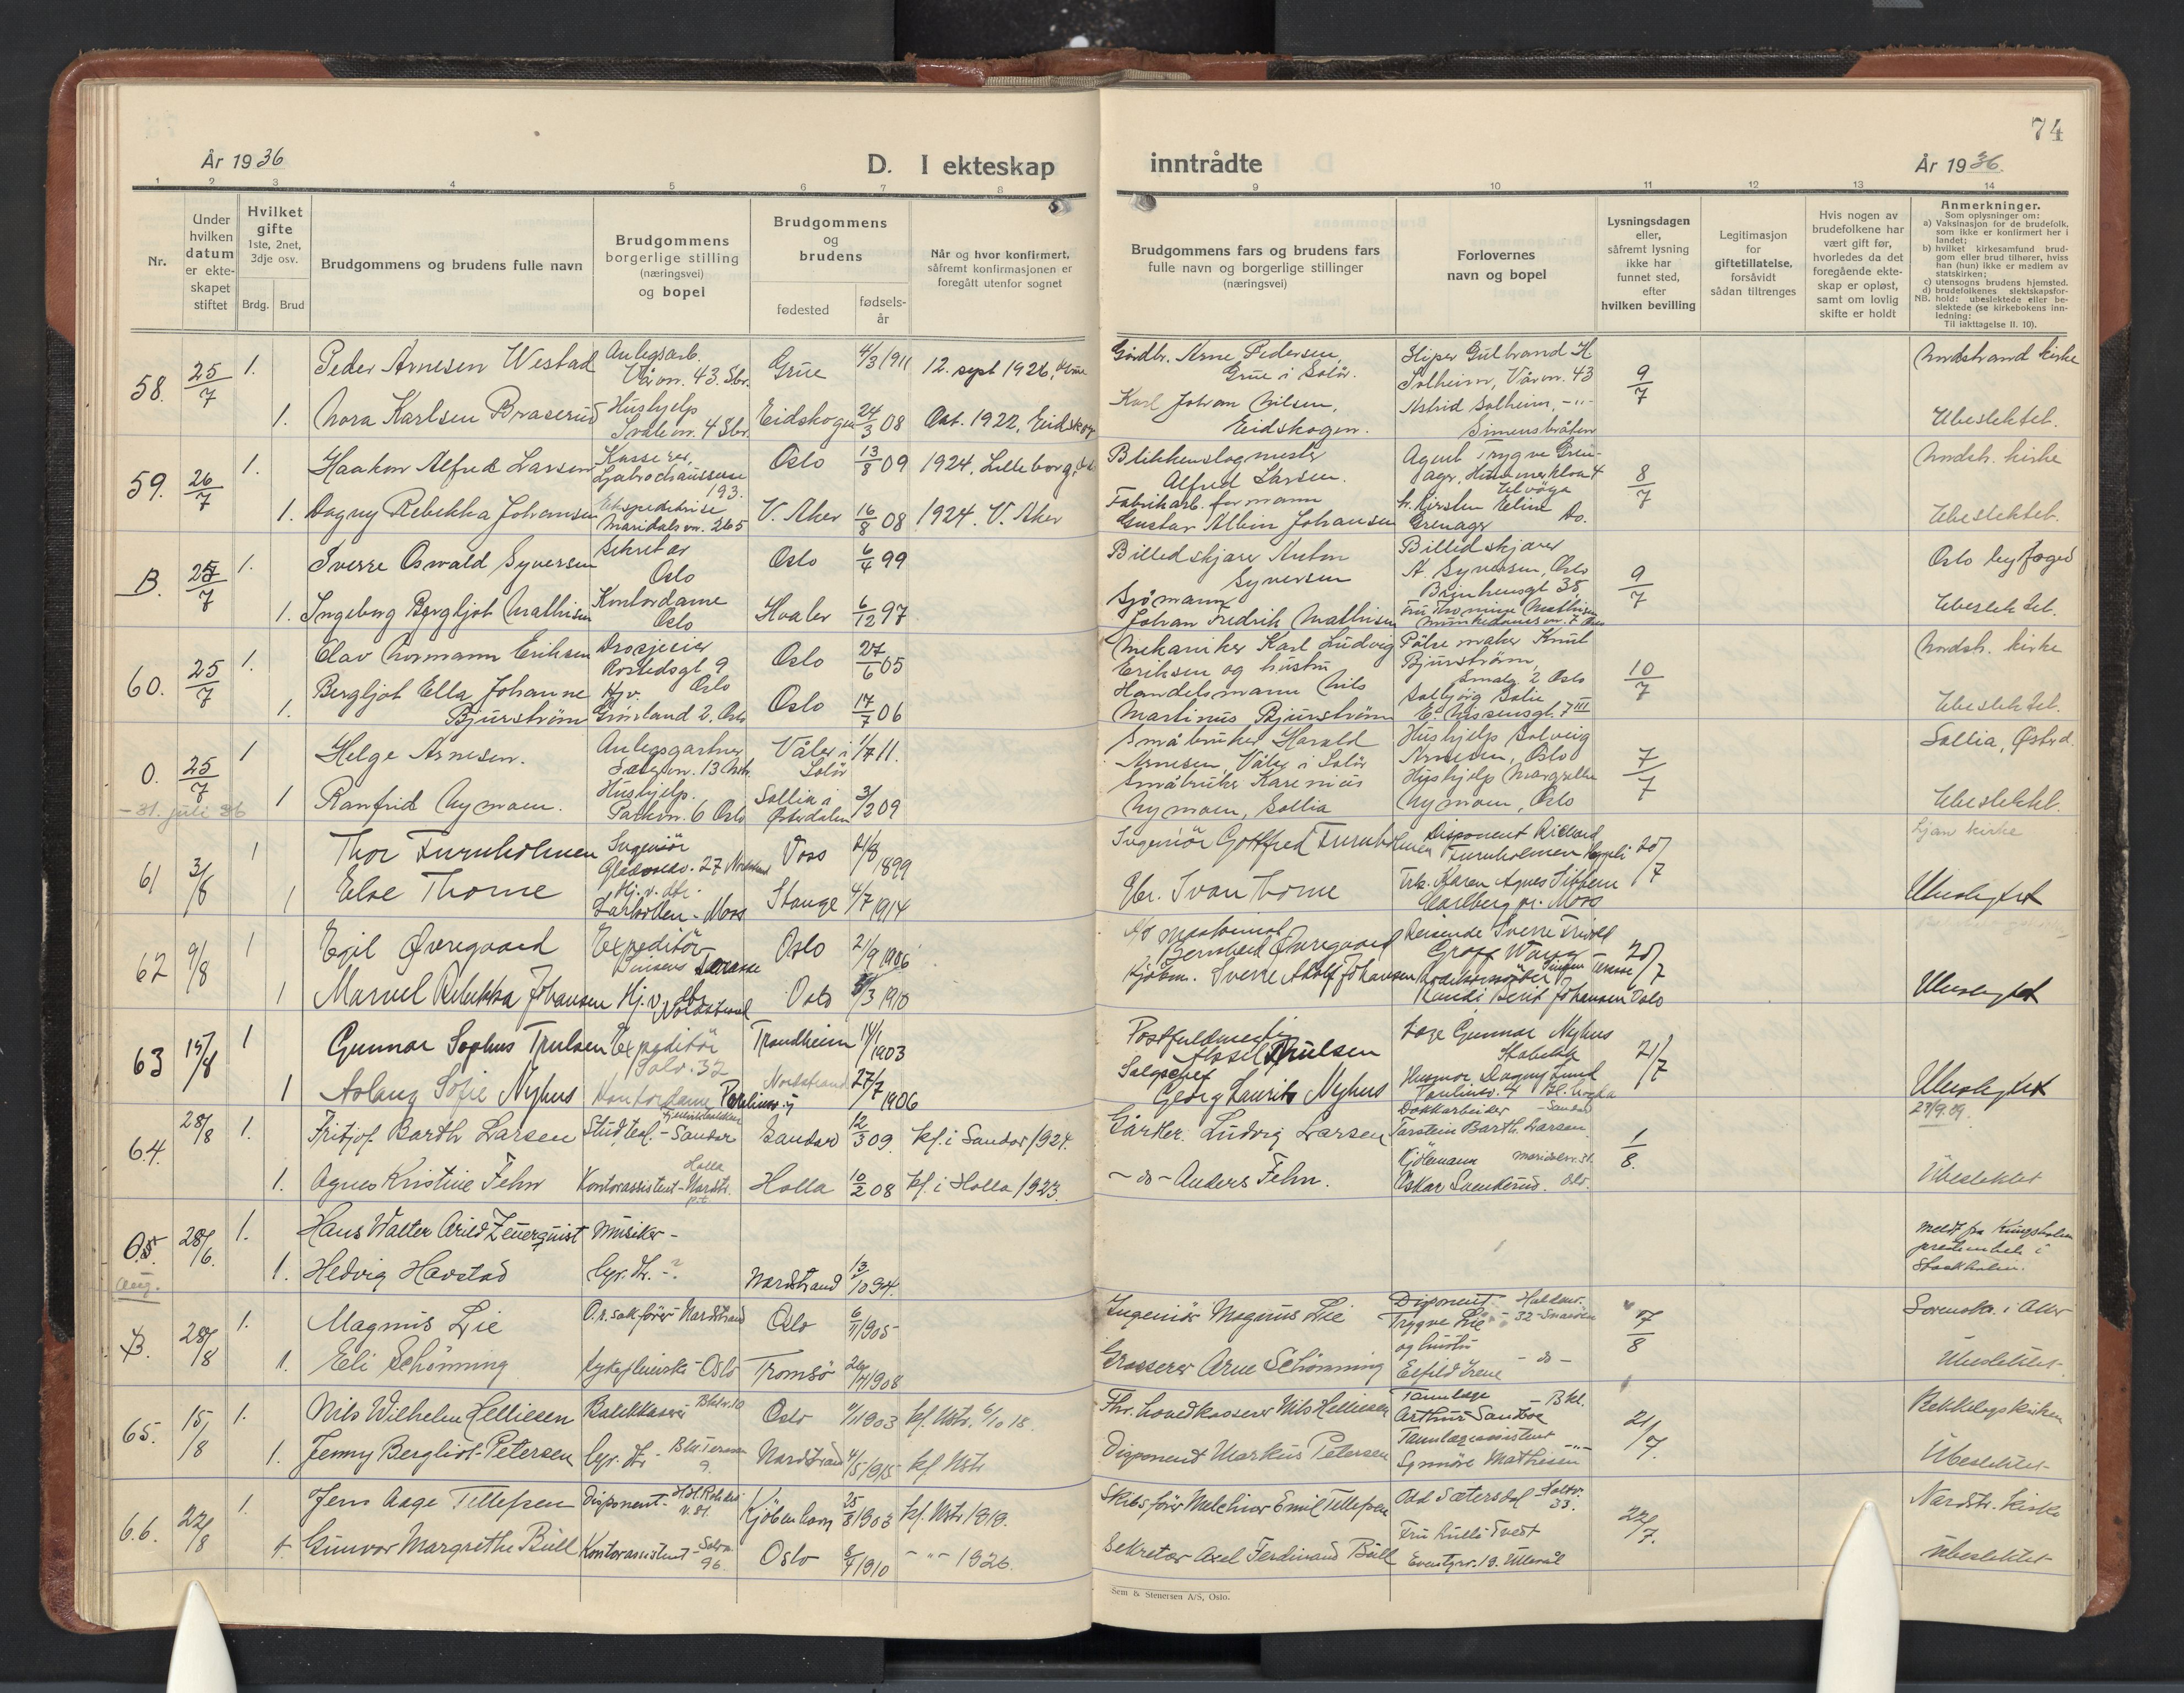 74
År 1936
D. I ekteskap
inntrådte
År 1936.
1 2 3 4 5 6 7 8 9 10 11 12 13 14
Nr.
Under
hvilken
datum
er ekte-
skapet
stiftet
Hvilket
gifte
1ste, 2net,
3dje osv.
Brdg. Brud
Brudgommens og brudens fulle navn
Brudgommens
borgerlige stilling
(næringsvei)
og bopel
Brudgommens
og
brudens
fødested
fødsels-
år
Når og hvor konfirmert,
såfremt konfirmasjonen er
foregått utenfor sognet
Brudgommens fars og brudens fars
fulle navn og borgerlige stillinger
(næringsvei)
Forlovernes
navn og bopel
Lysningsdagen
eller,
såfremt lysning
ikke har
funnet sted,
efter
hvilken bevilling
Legitimasjon
for
giftetillatelse,
forsåvidt
sådan tiltrenges
Hvis nogen av
brudefolkene har
vært gift før,
hvorledes da det
foregående ekte-
skap er opløst,
samt om lovlig
skifte er holdt
Anmerkninger.
Som oplysninger om:
a) Vaksinasjon for de brudefolk,
som ikke er konfirmert her i
landet;
b) hvilket kirkesamfund brud-
gom eller brud tilhører, hviss
han (hun) ikke er medlem av
statskirken;
c) utensogns brudens hjemsted.
d) brudefolkenes slektskapsfor-
NB. hold: ubeslektede eller be-
slektede (se kirkebokens inn-
ledning:
Til iakttagelse II. 10).
58. 25/7 1. Peder Arnesen Westad Anlegsarb. Grue 4/3 1911 12. sept 1926, Grue Gårdbr. Arne Pedersen, Gulbrand H 9/7 Nordstrand kirke
Vårvn. 43. Sbr. Grue i Solør. Solheim, Vårvn. 43
1. Nora Karlsen Braserud Hushjelp Eidskogen 24/3 08 Okt. 1922, Eidskog Karl Johan Nilsen, Astrid Solheim, -"- Ubeslektet.
Svalevn. 4 Sbr. Eidskogen. Simensbråten
59. 26/7 1. Haakon Alfred Larsen Kasserer, Oslo 13/8 09 1924. Lilleborg, Blikkenslagmester Agent Trygve Gren- 8/7 Nordstr. kirke
Ljabrochausseen 193. Alfred Larsen.
1. Dagny Rebekka Johansen Ekspeditrise V. Aker 16/8 08 1924. V. Aker Fabrikarb. formann Eline Ubeslektet.
Maridalsvn. 265 Gustav Albin Johansen Grenager do.
B. 25/7 1. Sverre Oswald Syversen Sekretær Oslo 6/4 99 Billedskjærer Anton Billedskjærer 9/7 Oslo byfoged
Oslo Syversen A. Syversen, Oslo
1. Ingeborg Bergljot Mathisen Kontordame Hvaler 6/12 97 Sjømann Fru Thomine Mathisen Ubeslektet.
Oslo Johan Fredrik Mathisen
60. 25/7 1. Olav Normann Eriksen Drosjeeier Oslo 27/6 05 Mekaniker Karl Ludvig Pølsemaker Knut 10/7 Nordstr. kirke
Rostedsgt 9 Oslo Eriksen og hustru Bjurstrøm, Smalg. 2 Oslo
1. Bergljot Ella Johanne Hjv. Oslo 17/7 06 Handelsmann Nils Solbjørg Solie Ubeslektet.
Bjurstrøm Grønland 2. Oslo Martinus Bjurstrøm E. Nissensgt. 7 III
O. 25/7 1 Helge Arnesen. Anlegsgartner Våler i 1/7 11. Småbruker Harald Hushjelp Solveig 7/7 Sollia, Østrd.
Solør Arnesen, Våler i Solør Arnesen, Oslo
-31. juli 36 1 Ranfrid Nymoen. Hushjelp. Sollia i 3/12 09 Småbruker Karenius Hushjelp Margrethe Ubeslektet.
Parkvn. 6 Oslo Østerdalen Nymoen, Sollia Nymoen, Oslo
61 3/8 1 Thor Furuholmen Ingeniør Voss 21/8 1899 Ingeniør Gottfred Furuholmen Disponent Rickard 20/7 Ljan kirke
Furuholmen
1 Else Thorne Hj. v. Stange 4/7 1914 Gbr. Ivan Thorne Frk. Karen Agnes Sibbern Ubeslektet
Larkollen - Moss Carlberg pr. Moss
62 9/8 1 Egil Øvregaard Expeditør Oslo 21/9 1906 Maskinist Reisende Sverre 20/7
Terrasse Bernhard Øvregaard
1 Marvel Rebekka Johansen Hj. v. Nordstrand Oslo /3 1910 Kjøbm. Sverre Adolf Johansen Randi Berit Johansen Oslo Ubeslektet
63 15/8 1 Gunnar Sophus Trulsen Expeditør Trondheim 14/1 1903 Postfuldmektig Læge Gunnar Nyhus 21/7
Solv. 32 Aksel Trulsen Stabekk
1 Aslaug Sofie Nyhus Kontordame Nordstrand 27/7 1906 Salgschef Husmor Dagny Lund Ubeslektet
Georg Laurits Nyhus Paulinsv. 4
64. 28/8 1. Fritjof Barth Larsen Stud. teol. - Sandar Sandar 12/3 09. kf. i Sandar 1924. Gartner. Ludvig Larsen Dokkarbeider - Sandar 1/8. 27/9.09.
Torstein Barth Larsen
1. Agnes Kristine Fehn Kontorassistent - Nordstr. Holla 10/2 08 kf. i Holla 1923. -do- Anders Fehn. Ubeslektet
Oskar Svenkerud. Oslo.
O. 28/6. 1. Hans Walter Arild Zeuerquist Musiker - Meldt fra Kungsholm
aug. 1. Hedvig Havstad Gyr. dtr. -? Nordstrand 13/10 94. i
Stockholm.
B. 28/8 1. Magnus Lie O.r. sakfører Nordstrand Oslo 6/11 1905 Ingeniør Magnus Lie Disponent 7/8 Sorenskr. i Aker
Trygve Lie - 32 -
og hustru
1. Eli Schønning Sykepleierske - Oslo Tromsø 26/11 1908 Grosserer Arne Schønning Esfild Irene - do - Ubeslektet.
65. 15/8 1. Nils Wilhelm Helliesen Bankkasserer Oslo 9/11 1903 kf. Nstr. 6/10 18. Fhv. hovedkasserer Nils Helliesen Tannlege - Bkl. 21/7. Bekkelagskirken
Arthur Sandboe
1. Jenny Bergliot Petersen Gyr. dtr Nordstrand 4/5 1915 kf Nstr Disponent Markus Petersen Tannlegeassistent Ubeslektet
Synnøve Mathisen -"-
66. 22/8 1. Jens Aage Tellefsen Disponent - Kjøbenhavn 25/8 1903 kf. Nstr. 1919. Skibsfører Melchior Emil Tellefsen Odd Sætersdal - Solv. 33. 22/7. Nordstr. kirke
1. Gunvor Margrethe Bull Kontorassistent - Solv. 96. Oslo 8/4 1910 - " - 1926. Sekretær Axel Ferdinand Bull Fru Lulli Tvedt Ubeslektet
Eventyrv. 19. Ullevål
Sem & Stenersen A/S, Oslo.